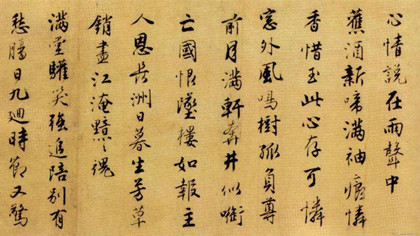 心情說在雨聲中
舊酒新啼滿袖痕憐
香惜玉此心存可憐
窓外風鳴樹孤負尊
前月滿軒奔井似啣
亡國恨墜樓如報主
人恩長洲日暮生芳草
銷盡江淹黯々魂
滿堂驩笑強追陪別有
愁腸日九迴時節又驚